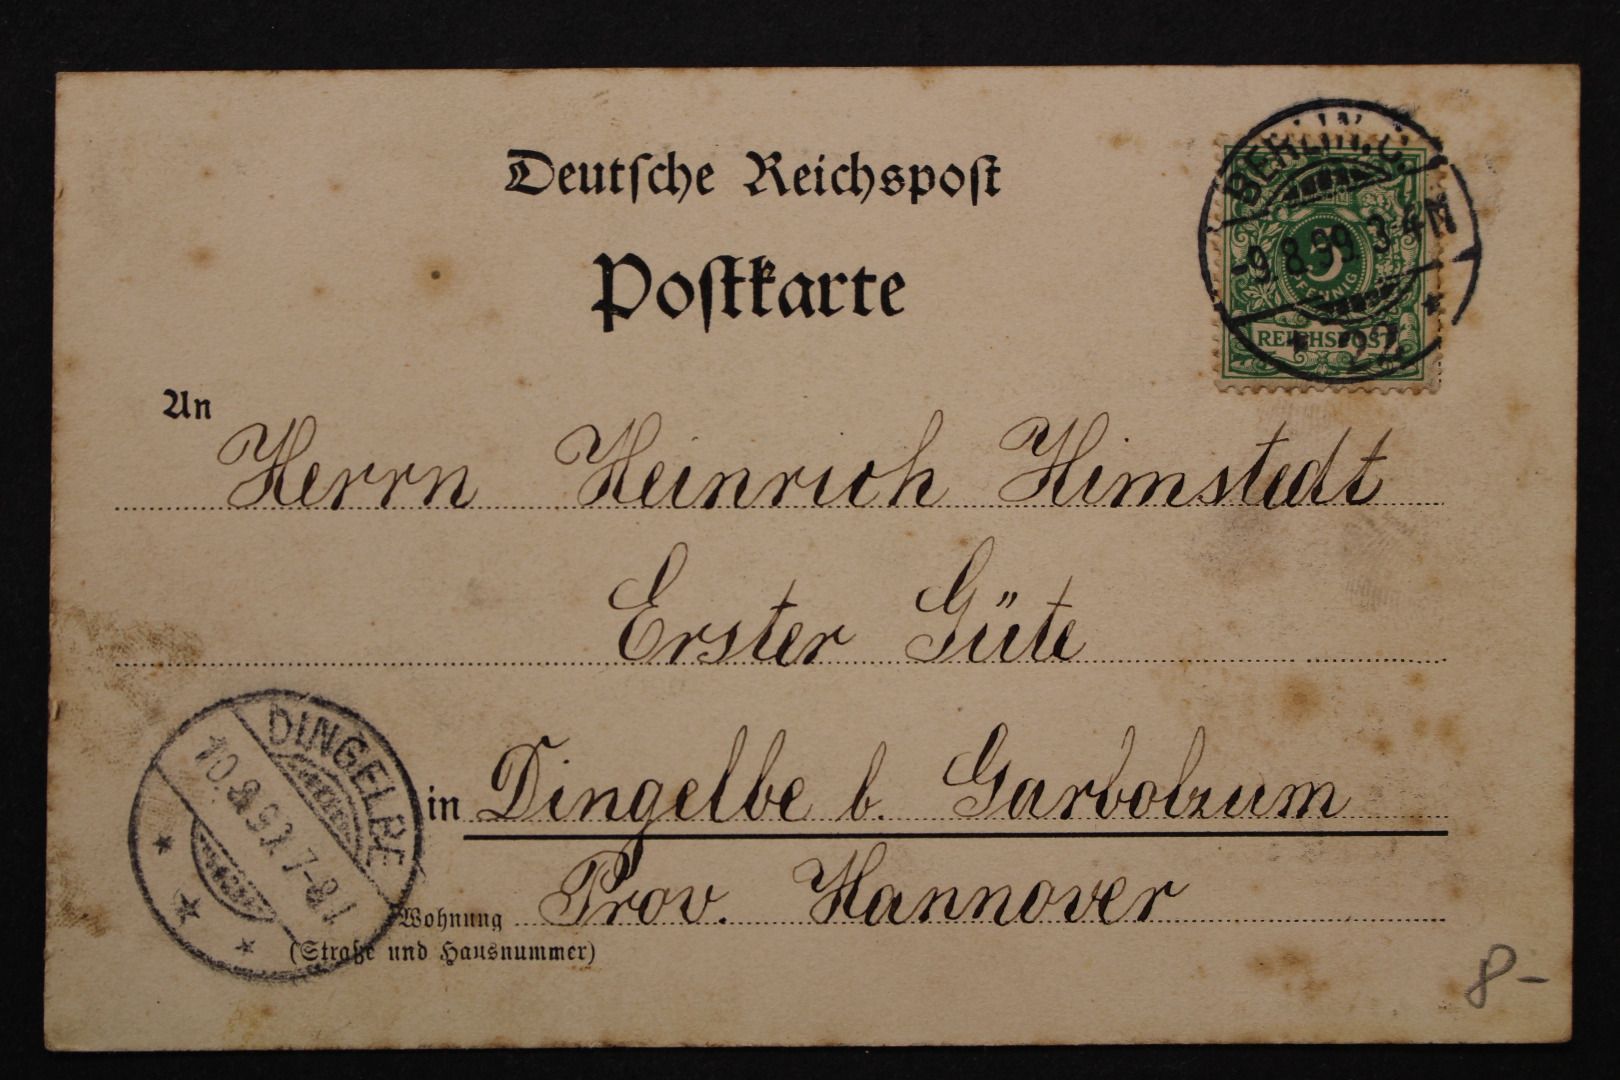 Deutsche Reichspost
Postkarte
BERLIN, C.
-9. 8. 99. 3-4N
* 22 *
5
PFENNIG
REICHSPOST
An Herrn Heinrich Himstedt
Erster Güte
in Dingelbe b. Garbolzum
Prov. Hannover
Wohnung
(Straße und Hausnummer)
DINGELBE
10. 8. 99. 7-8V
8-